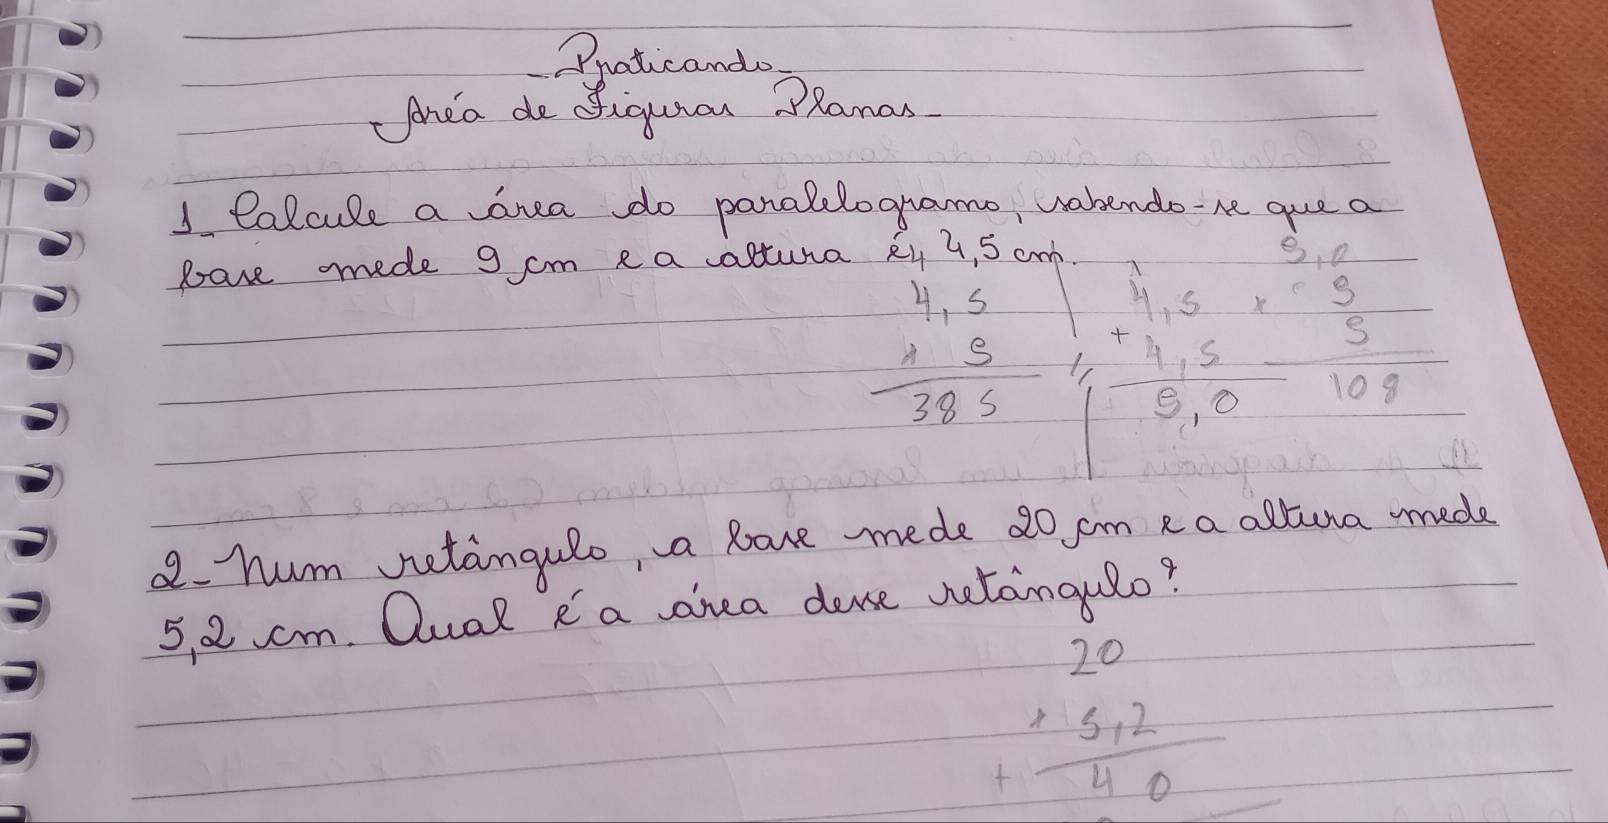 - Praticando -
- Aréa de Figuras Planas -
1- Calcule a área do paralelogramo, sabendo-se que a
base mede 9 cm e a altura é 4,5 cm.
4,5
x 9
385
4,5
+ 4,5
9,0
9,0
x 9
9
108
2- Num retângulo, a base mede 20 cm e a altura mede
5,2 cm. Qual é a área desse retângulo?
20
x 5,2
+ 40